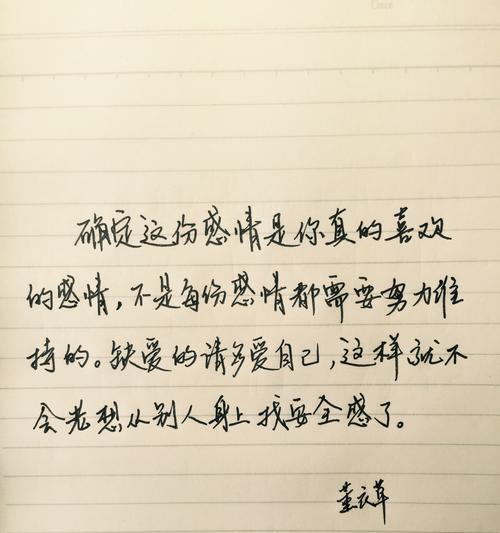 确定这份感情是你真的喜欢
的感情，不是每份感情都需要努力维
持的。缺爱的请多爱自己，这样就不
会老想从别人身上找安全感了。
薰衣草